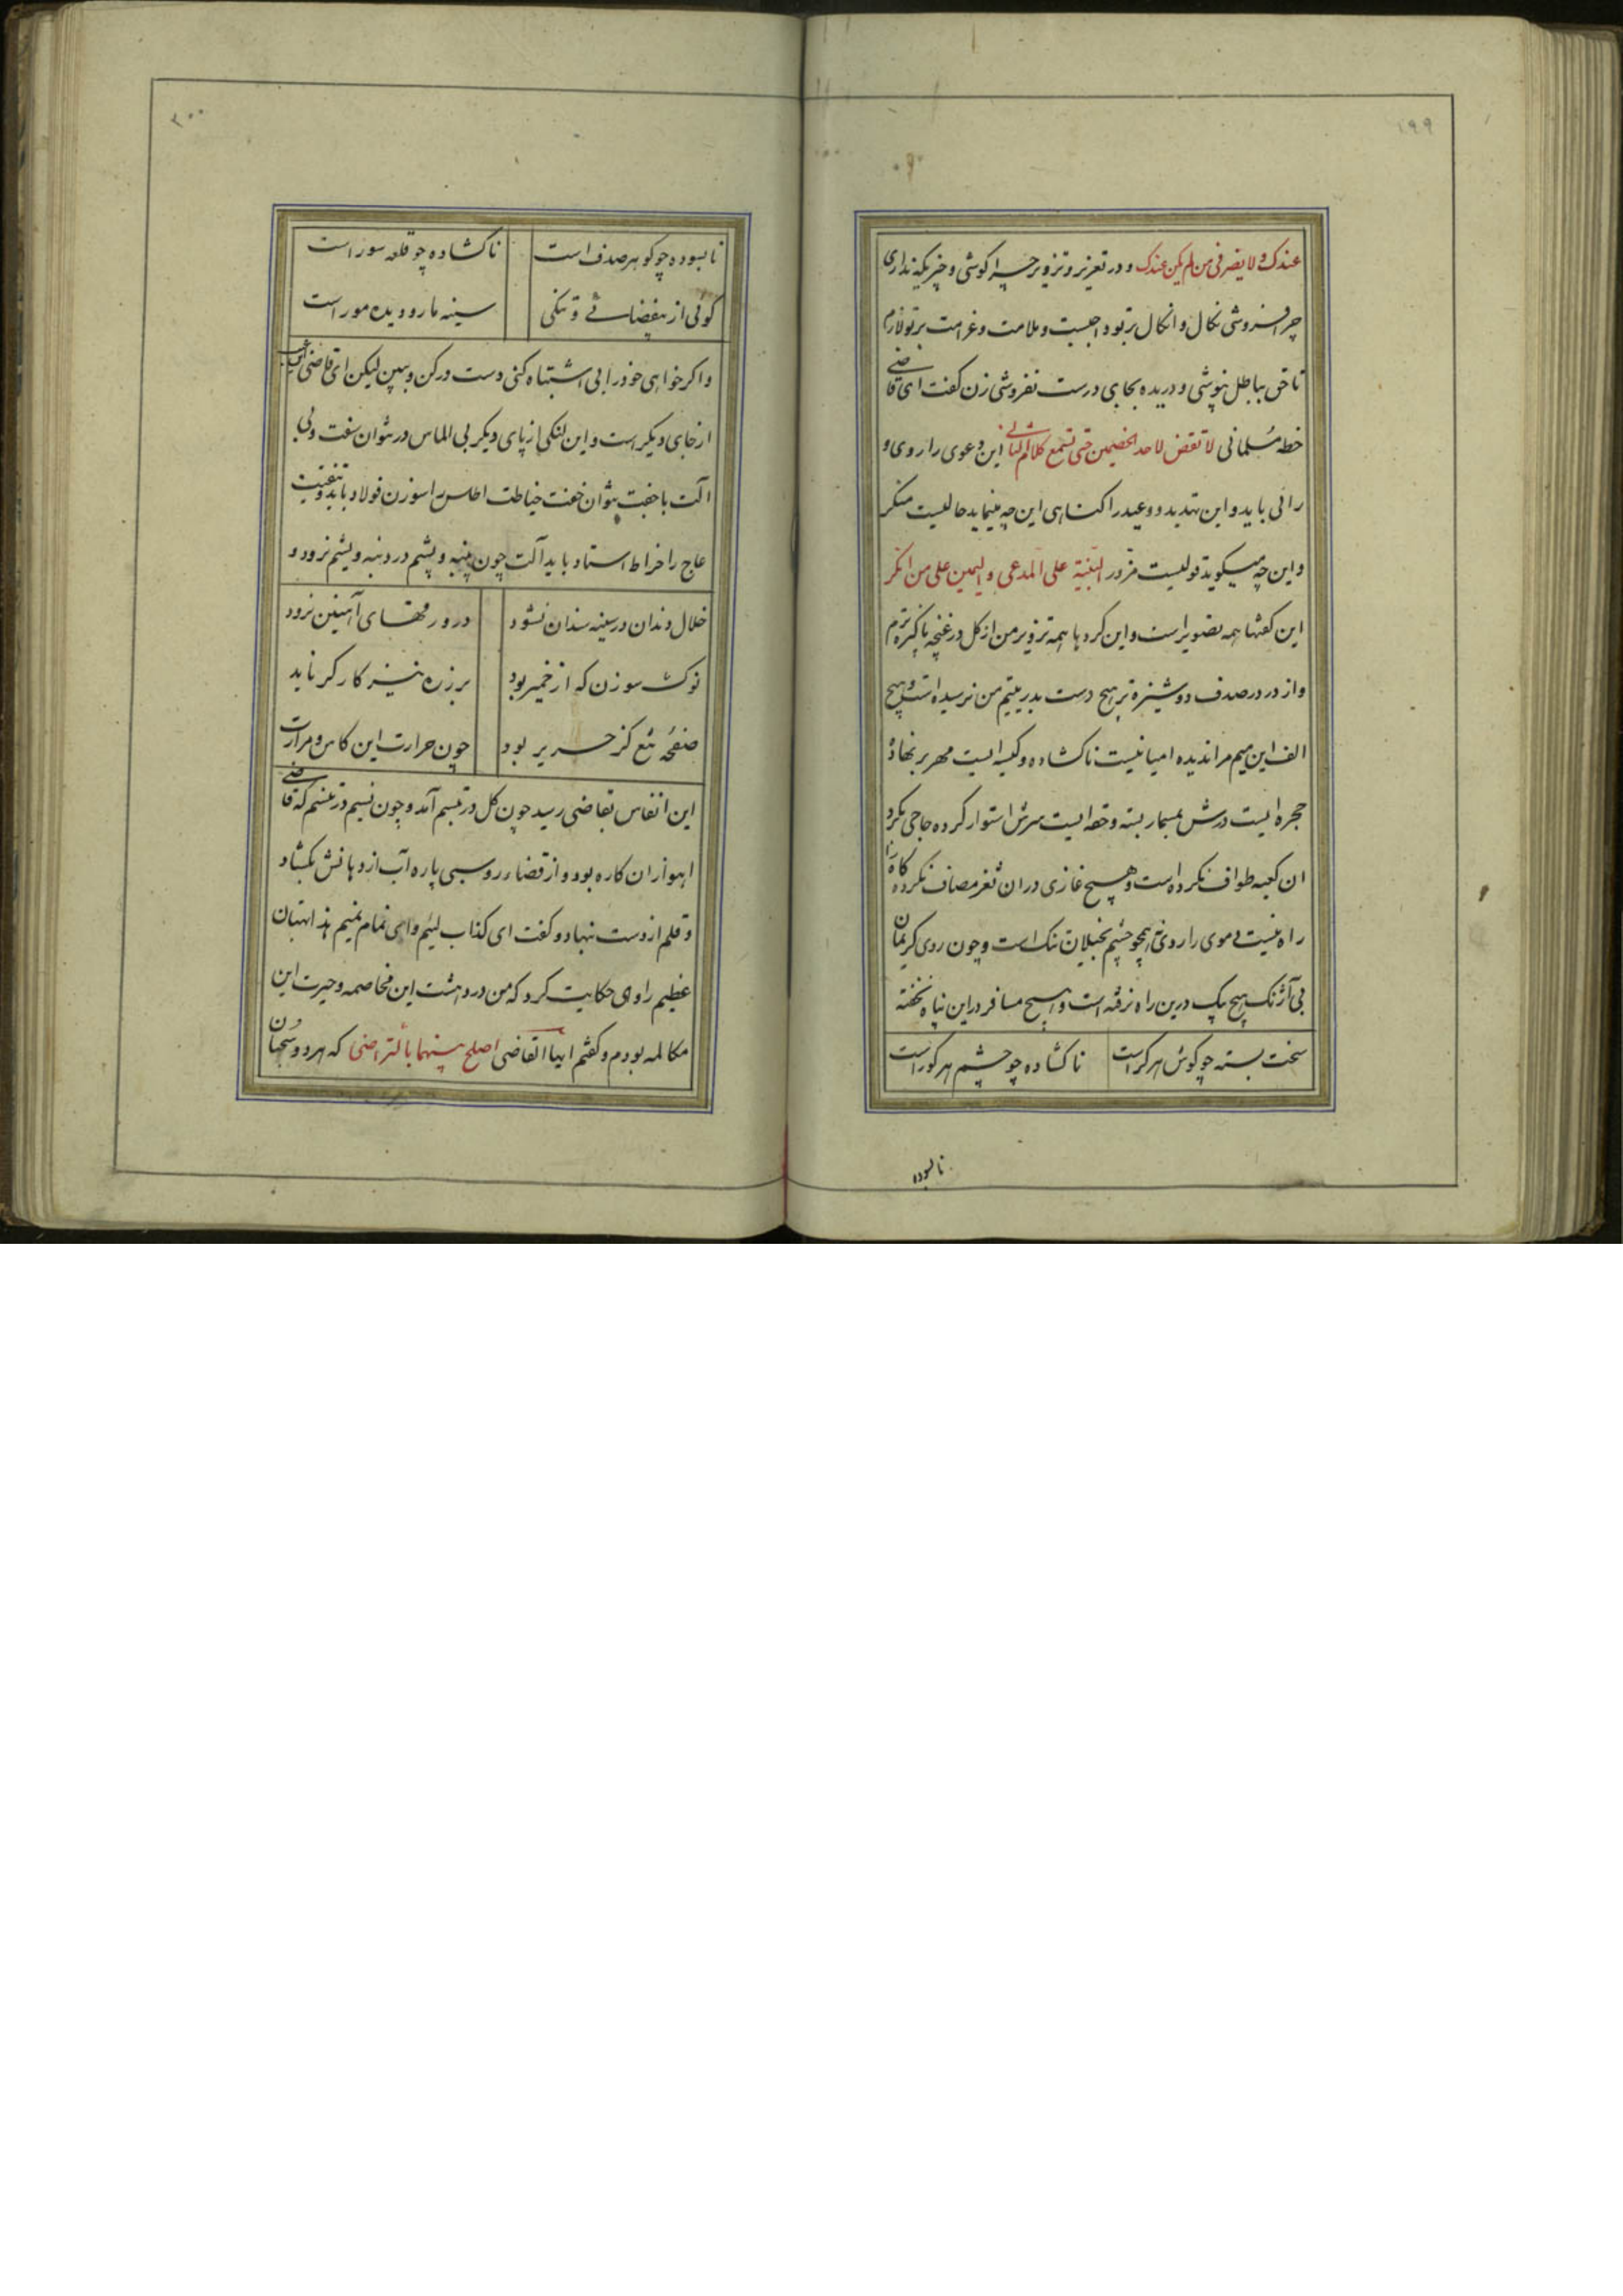 ۱۹۹
عندک ولا یضر فی من لم یکن عندک و در تعزیر و تزویر چرا کوشی و چیزیکه نداری
چرا فروشی نکال و انکال بر تو واجبست و ملامت و غرامت بر تو لازم
تا حق بباطل نپوشی و دریده بجای درست نفروشی زن کفت ای قاضی
خطه مسلمانی لا تقض لاحد الخصمین حتی تسمع کلام الثانی این دعوی را روی و
رائی باید و این تهدید و وعید را کناهی این چه مینماید حالیست منکر
و این چه میکوید قولیست مزور البینة علی المدعی والیمین علی من انکر
این کفتها همه تصویر است و این کردها همه تزویر من از کل در غنچه پاکیزه ترم
و از در در صدف دوشیزه تر هیچ دست بدر یتیم من نرسیده است و هیچ
الف این میم مرا ندیده امیانیست ناکشاده و کیسه ایست مهر بر نهاده
حجره ایست درش بمسمار بسته و حقه ایست سرش استوار کرده حاجی کرد
ان کعبه طواف نکرده است و هیچ غازی دران ثغر مصاف نکرده کاه را
راه نیست و موی را روی همچو چشم بخیلان تنک است و چون روی کریمان
بی آژنک هیچ پیک درین راه نرفته است و هیچ مسافر دراین پناه نخفته
سخت بسته چو کوش هر کر است ناکشاده چو چشم هر کور است
نابسوده
۲۰۰
نابسوده چو کوهر صدف است ناکشاده چو قلعه سور است
کوئی از بیفضائی و تنکی سینه مار و دیده مور است
و اکر خواهی خود را بی اشتباه کنی دست در کن و ببین لیکن ای قاضی این
از جای دیکر است و این لنکی از پای دیکر بی الماس در نتوان سفت و بی
الت با جفت نتوان خفت خیاطت اطلس را سوزن فولاد باید و تنقیب
عاج را خراط استاد باید آلت چون پنبه و پشم در دنبه و یشم نرود و
خلال دندان در سینه سندان نشود در ورقهای آهنین نرود
نوک سوزن که از خمیر بود بر زره نیز کار کر ناید
صفحه تیغ کز حریر بود چون حرارت این کاس و مرارت
این انفاس بقاضی رسید چون کل در تبسم آمد و چون نسیم در تنسم که قاضی
اهواز ان کاره بود و از قضاء روسبی پاره آب از دهانش بکشاد
و قلم از دست نهاد و کفت ای کذاب لئیم وای نمام نمیم هذا بهتان
عظیم راوی حکایت کرد که من در دهشت این مخاصمه و حیرت این
مکالمه بودم و کفتم ایها القاضی اصلح بینهما بالتراضی که هر دو